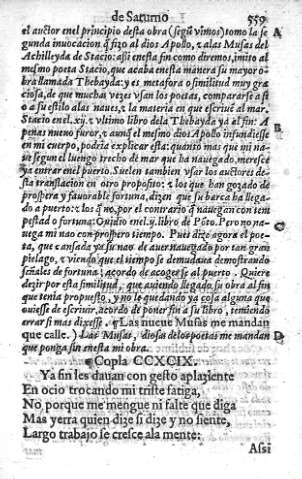 de Saturno 559
el auctor enel principio desta obra (segũ vimos) tomo la se
gunda inuocacion q̃ fizo al dios Apollo, τ alas Musas del
Achilleyda de Stacio: assi enesta fin como diremos, imito al
mesmo poeta Stacio, que acaba enesta manera su mayor o-
bra llamada Thebayda: y es metafora o similitud muy gra
ciosa, de que muchas vezes vsan los poetas, compararse assi
o a su estilo alas naues, τ la materia en que escriuẽ al mar.
Stacio enel .xij. τ vltimo libro dela Thebayda ya el fin: A
penas nueuo furor, τ aunq̃ el mesmo dios Apollo infundiesse
en mi cuerpo, podria explicar esta: quanto mas que mi na-
ue segun el luengo trecho de mar que ha nauegado, meresce
ya entrar enel puerto. Suelen tambien vsar los auctores de-
sta translacion en otro proposito: τ los que han gozado de
prospera y fauorable fortuna, dizen que su barca ha llega-
do a puerto: τ los q̃ no, por el contrario q̃ nauegan con tem
pestad o fortuna: Ouidio enel .j. libro de Põto. Pero no na-
uega mi nao con prospero tiempo. Pues dize agora el poe-
ta, que cansada ya su nao de auer nauegado por tan gran
phelago, τ viendo que el tiempo se demudaua demostrando
señales de fortuna: acordo de acogerse al puerto. Quiere
dezir por esta similitud, que auiendo llegado su obra al fin
que tenia propuesto, y no le quedando ya cosa alguna que
ouiesse de escriuir, acordo de poner fin a su libro, temiendo
errar si mas dixesse. ¶ Las nueue Musas me mandan
que calle.) Las Musas, diosas delos poetas me mandan
que ponga fin enesta mi obra.
¶ Copla CCXCIX.
Ya fin les dauan con gesto aplaziente
En ocio trocando mi triste fatiga,
No porque me mengue ni falte que diga
Mas yerra quien dize si dize y no siente,
Largo trabajo se cresce ala mente:
Assi
A
B
C
D